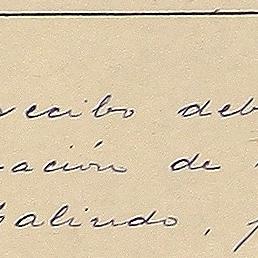 recibo deb
ación de
Galindo, p